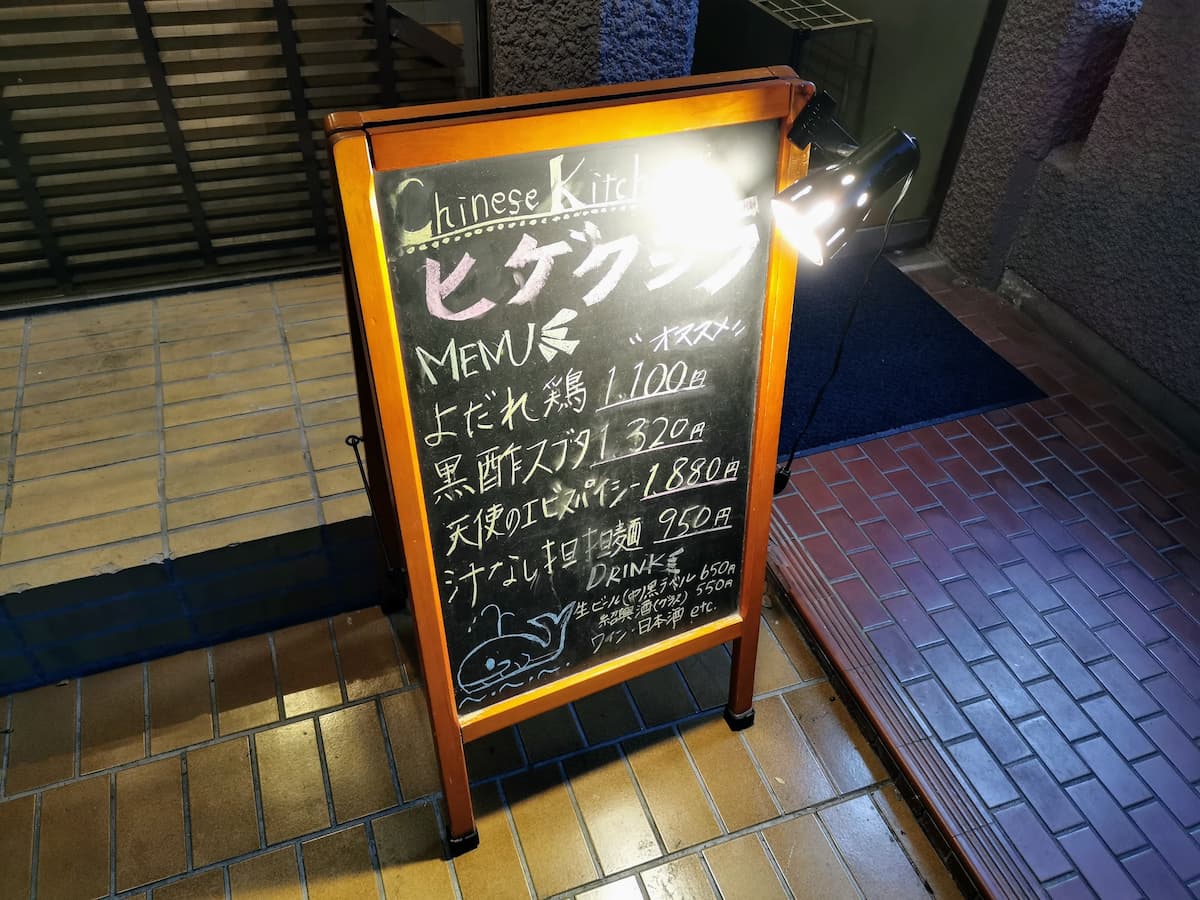 Chinese
ヒゲクジラ
MENU
オススメ
よだれ鶏 1.100円
黒酢スブタ 1.320円
天使のエビスパイシー 1.880円
汁なし担担麺 950円
DRINK
生ビール(中)黒ラベル 650円
紹興酒(グラス) 550円
ワイン・日本酒 etc.